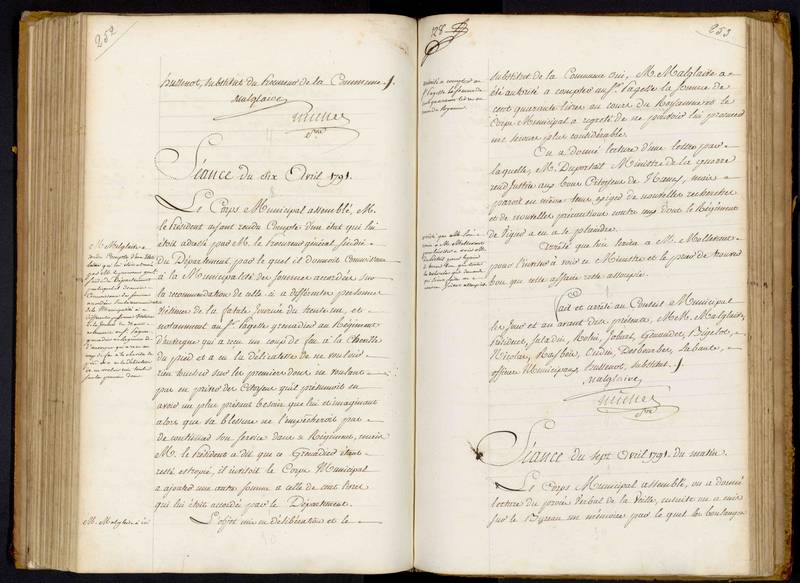 252
hussenot, substitut du Procureur de la Commune.
Malglaive
Michel
Sre
Séance du Six Avril 1791.
Le Corps Municipal assemblé, M.
le Président ayant rendu Compte d'un état qui lui
étoit adressé par M. le Procureur général Sindic
du Département par le quel il donnoit Connoissance
à la Municipalité des sommes accordées sur
la recommendation de celle ci a différentes personnes
victimes de la fatale journée du trente un, et
notamment au Sr. Lagesse grenadier au Régiment
d'auvergne qui a reçu un coup de feu à la Cheville
du pied et a eu la délicatesse de ne vouloir
rien toucher sur les premiers dons ne voulant
pas en priver des Citoyens qu'il présumoit en
avoir un plus présent besoin que lui et imaginant
alors que sa blessure ne l'empêcheroit pas
de continuer son service dans ce Régiment, mais
M. le Président a dit que ce Grenadier étant
resté estropié, il invitoit le Corps Municipal
a ajouter une autre somme a celle de cent livres
qui lui étoit accordée par le Département.
L'objet mis en délibération et le
M. Malglaive a
rendu Compte d'un état
M. Malglaive a été
128
253
autorisé a compter au
Sr. Lagesse la somme de
substitut de la Commune oui, M. Malglaive a
été autorisé a compter au Sr. Lagesse la somme de
cent quarante livres au cours du Royaume et le
Corps Municipal a regretté de ne pouvoir lui procurer
un secours plus considérable.
On a donné lecture d'une lettre par
laquelle, M. Duportail Ministre de la guerre
rend justice aux bons Citoyens de Nancy, mais
paroit en même tems exiger de nouvelles recherches
et de nouvelles précautions contre ceux dont le Régiment
de Vigier a eu a se plaindre.
Arrêté que lui écrira a M. Mollevaut
pour l'inviter à voir ce Ministre et le prier de trouver
bon que cette affaire reste assoupie.
Fait et arrêté au Conseil Municipal
les Jour et an avant dits, présents, MM. Malglaive,
Président, Saladin, Rolin, Jobart, Genaudet, Bigelot,
Nicolas, Rasbéri, Eudin, Desbourbes, Labaute,
officiers Municipaux, hussenot, substitut.
Malglaive
Michel
Sre
Séance du sept Avril 1791. du matin.
Le Corps Municipal assemblé, on a donné
lecture du procès Verbal de la Veille, ensuite on a mis
sur le Bureau un mémoire par le quel les boulangers